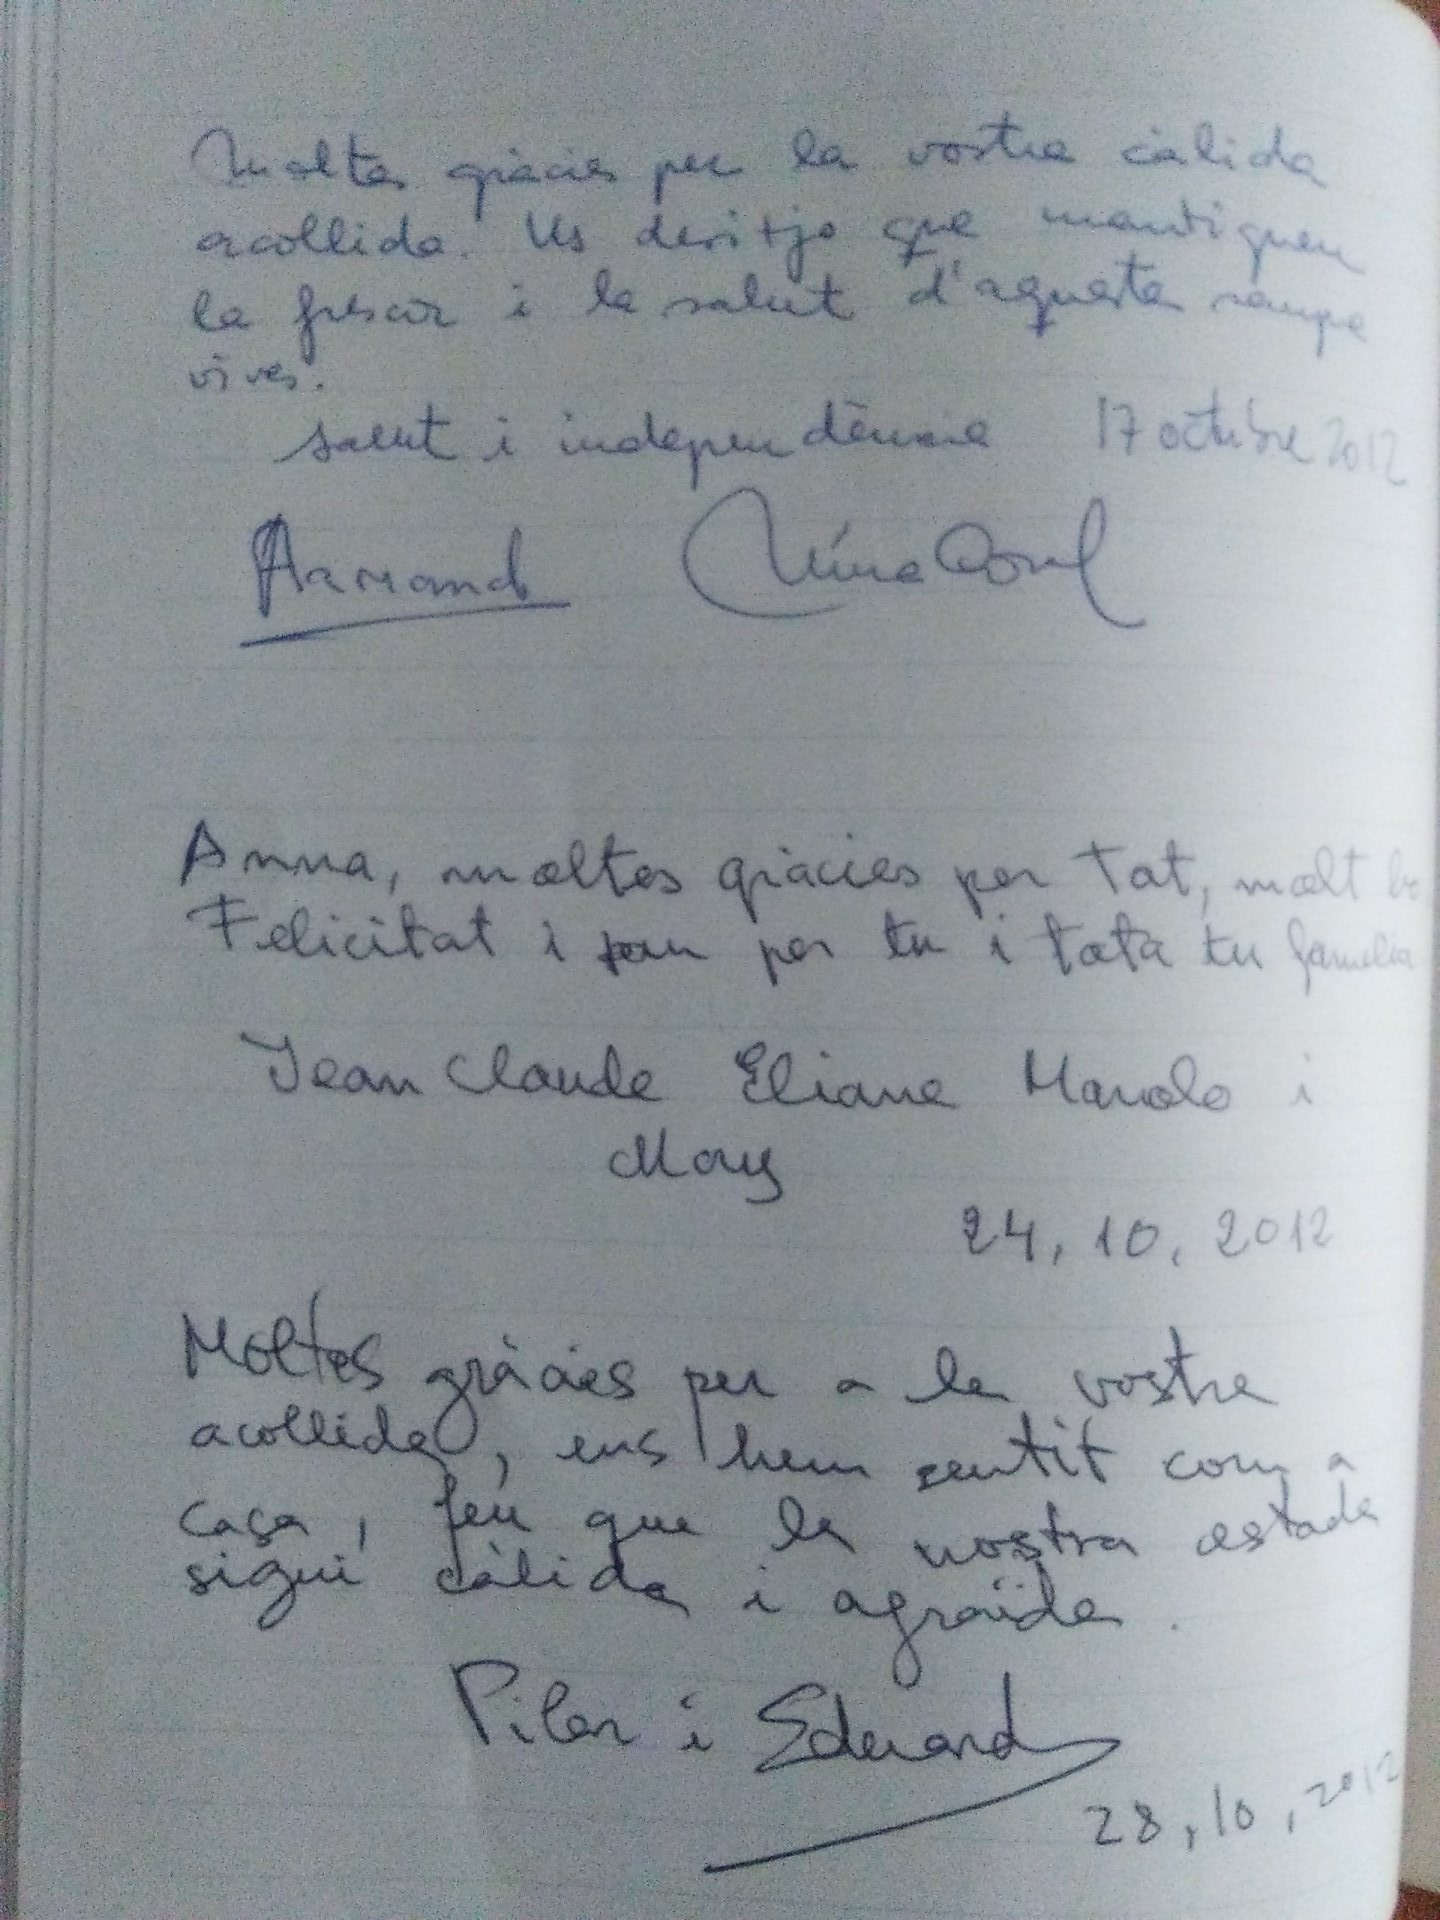 Moltes gràcies per la vostra càlida
acollida. Us desitjo que mantigueu
la frescor i la salut d'aquesta sempre
vives.
Salut i independència 17 octubre 2012
Armand
Anna, moltes gràcies per tot, molt bo
Felicitat i pau per tu i tota tu familia
Jean Claude Eliane Manolo i
Mary
24, 10, 2012
Moltes gràcies per a la vostra
acollida, ens hem sentit com a
casa, feu que la nostra estada
sigui càlida i agraïda.
Pilar i Eduard
28, 10, 2012